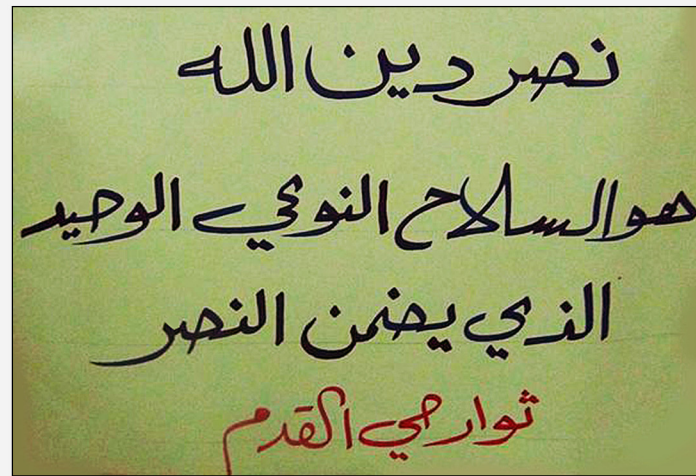 نصر دين الله
هو السلاح النوعي الوحيد
الذي يضمن النصر
ثوار حي القدم